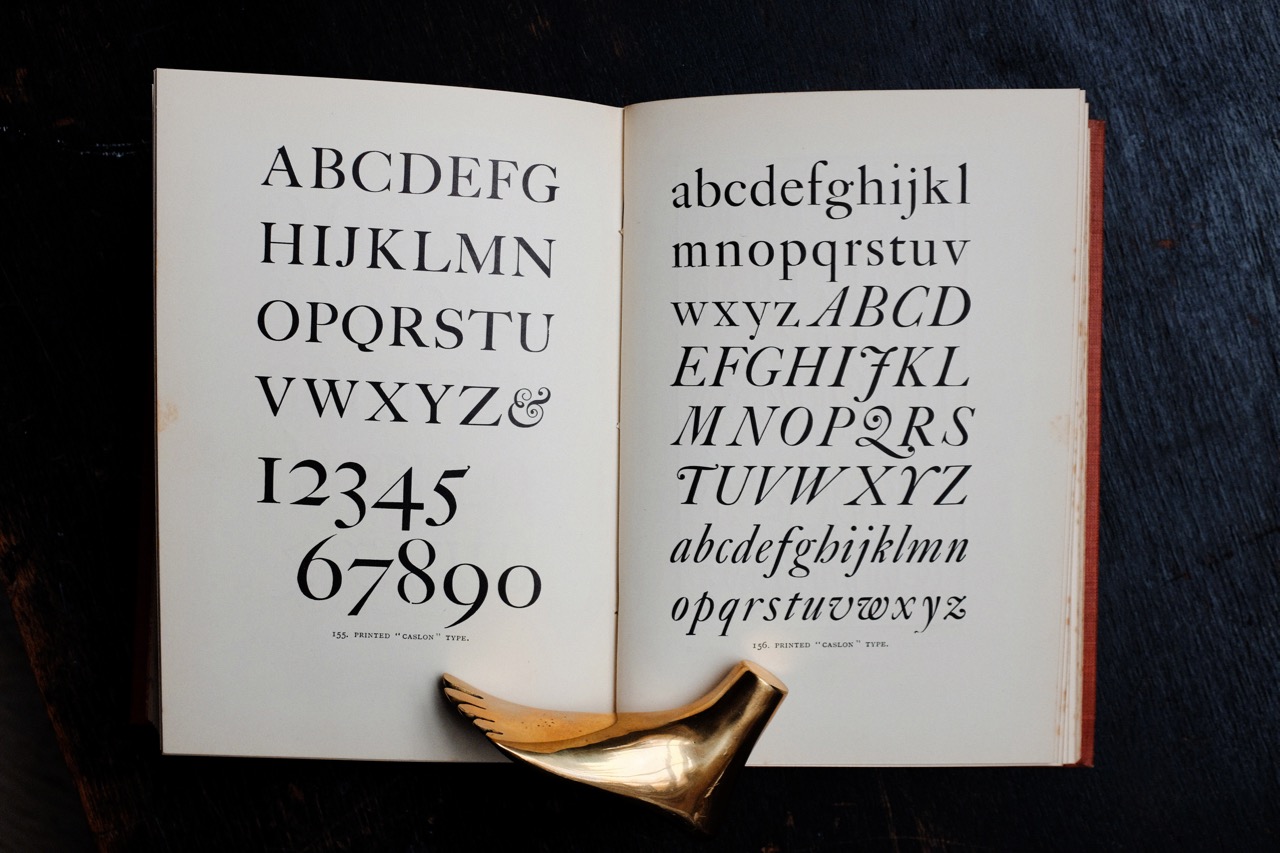 ABCDEFG
HIJKLMN
OPQRSTU
VWXYZ&
12345
67890
155. PRINTED "CASLON" TYPE.
abcdefghijkl
mnopqrstuv
wxyz ABCD
EFGHIJKL
MNOPQRS
TUVWXYZ
abcdefghijklmn
opqrstuvwxyz
156. PRINTED "CASLON" TYPE.